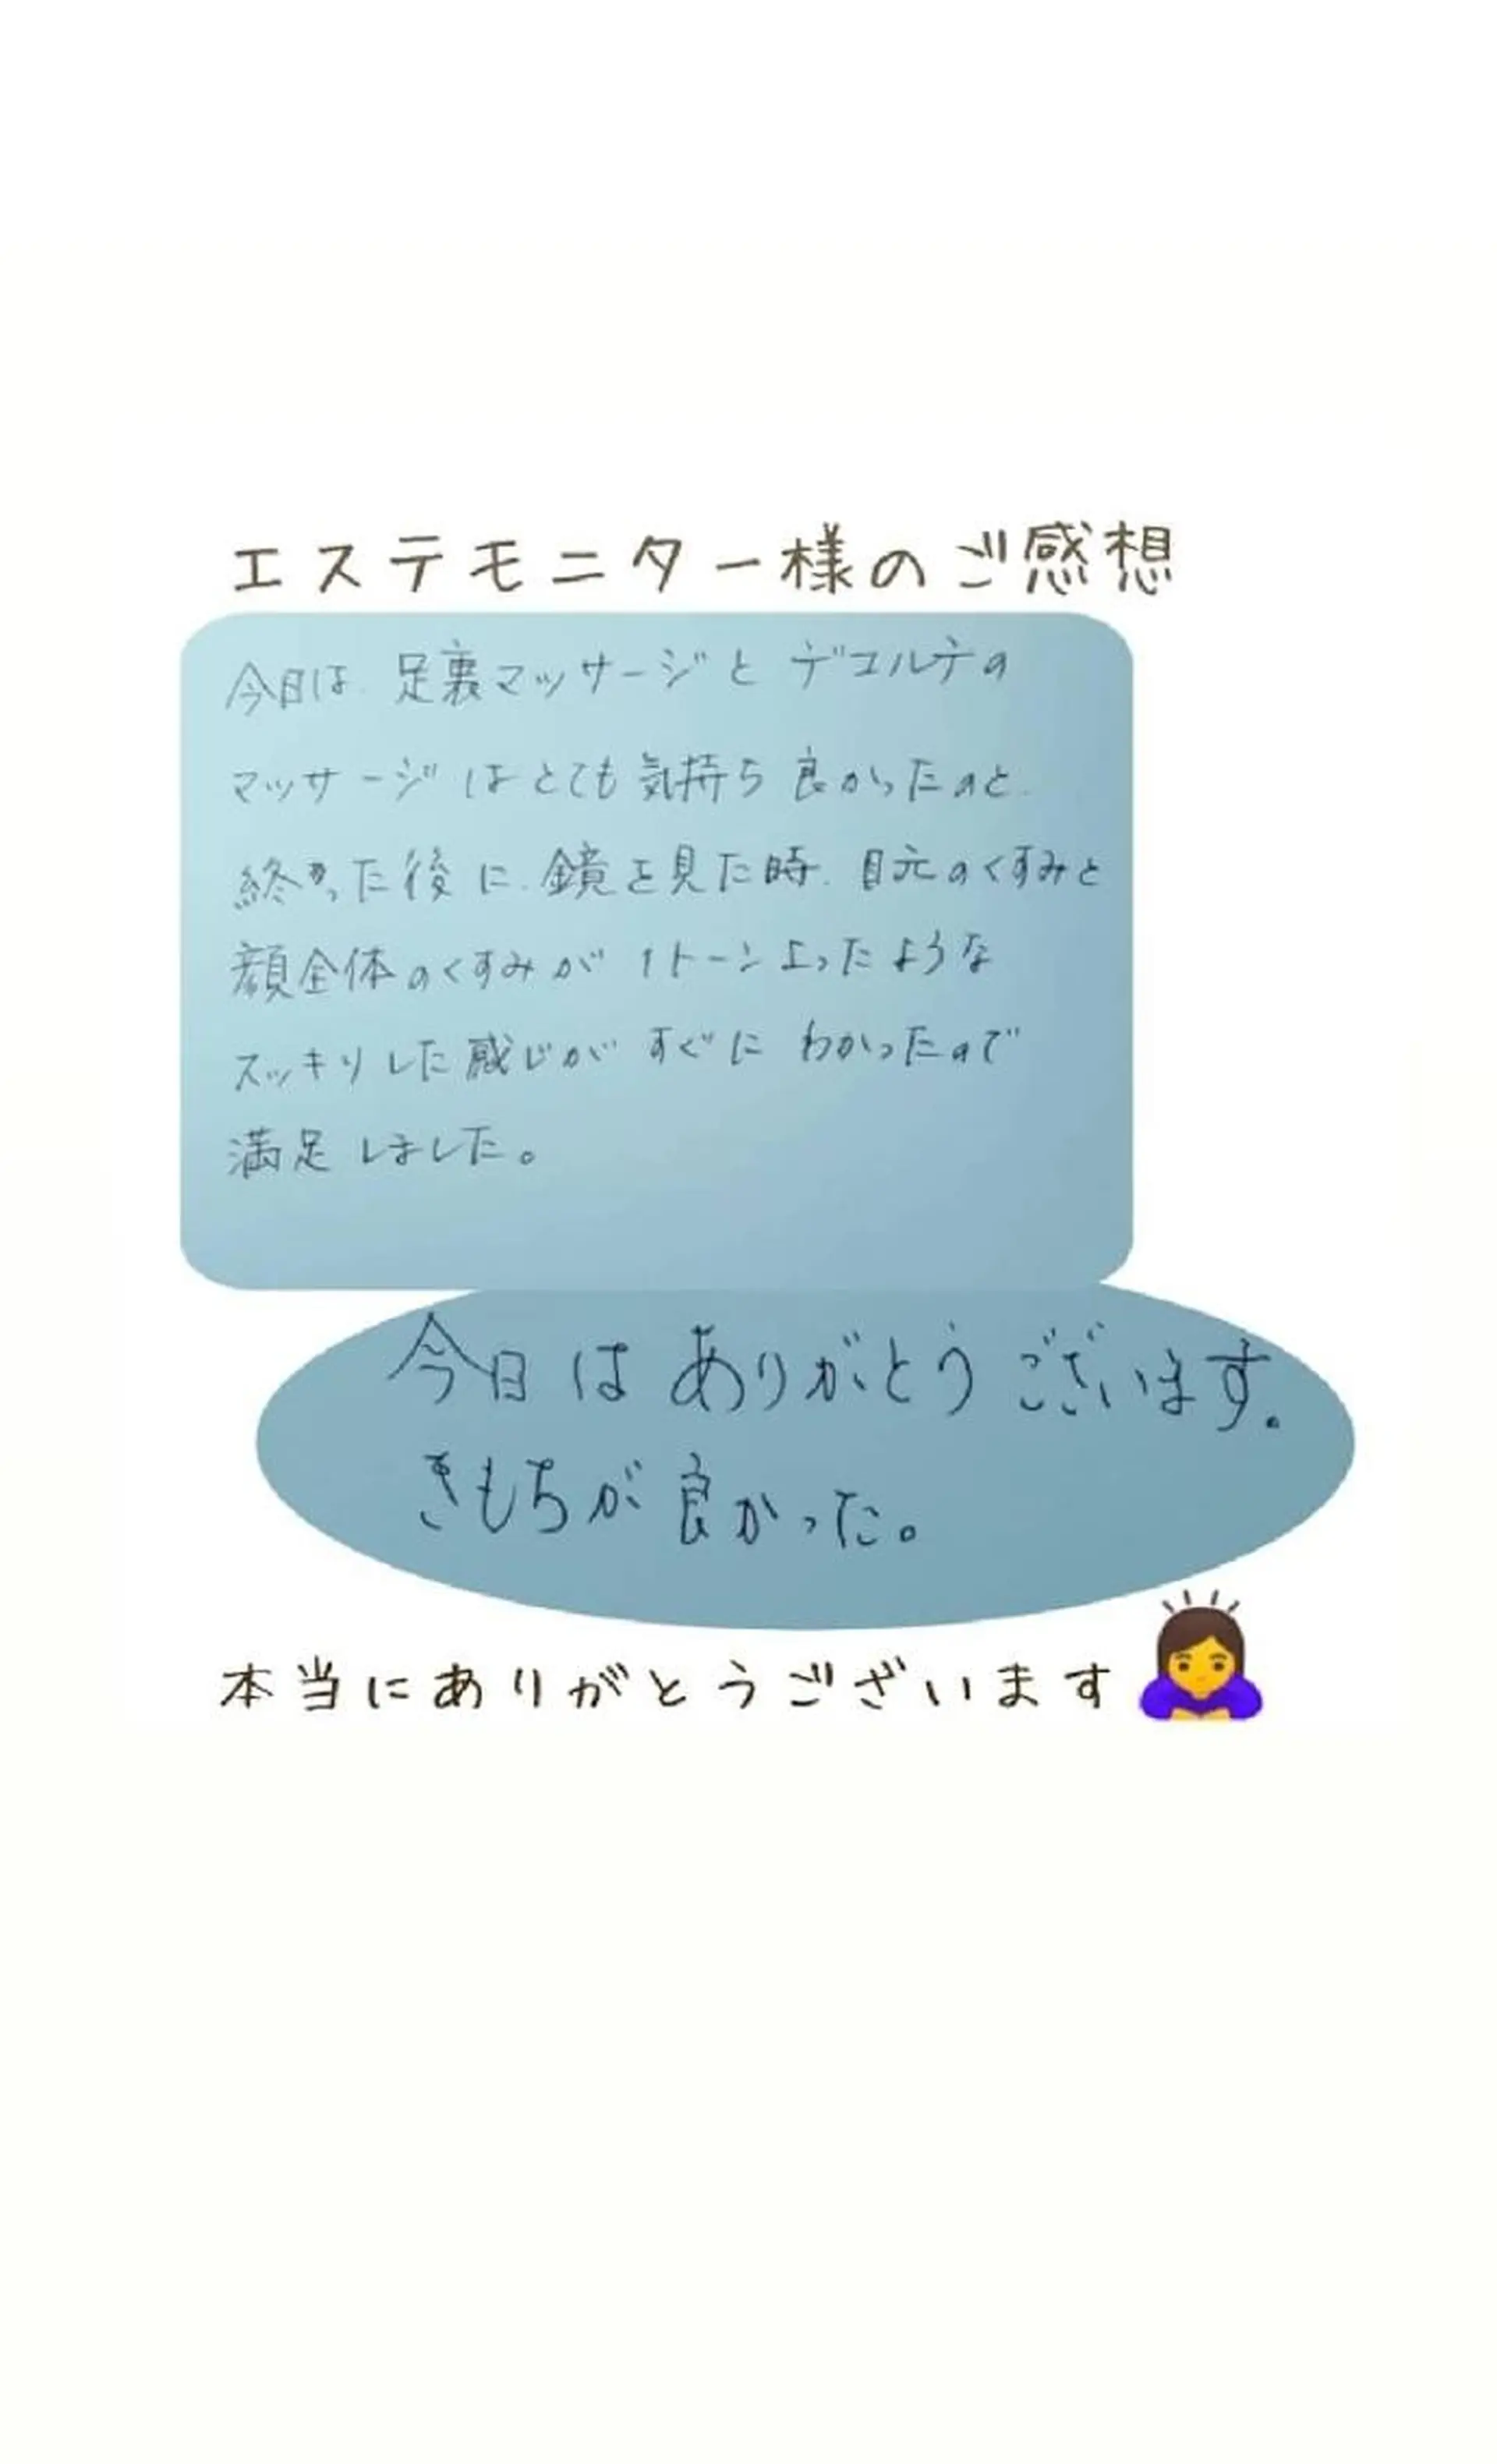 エステモニター様のご感想
今日は、足裏マッサージと デコルテの
マッサージはとても気持ち良かったのと、
終わった後に、鏡を見た時、目元のくすみと
顔全体のくすみが 1トーン上ったような
スッキリした感じが すぐに わかったので
満足しました。
今日は ありがとう ございます。
きもちが良かった。
本当にありがとうございます